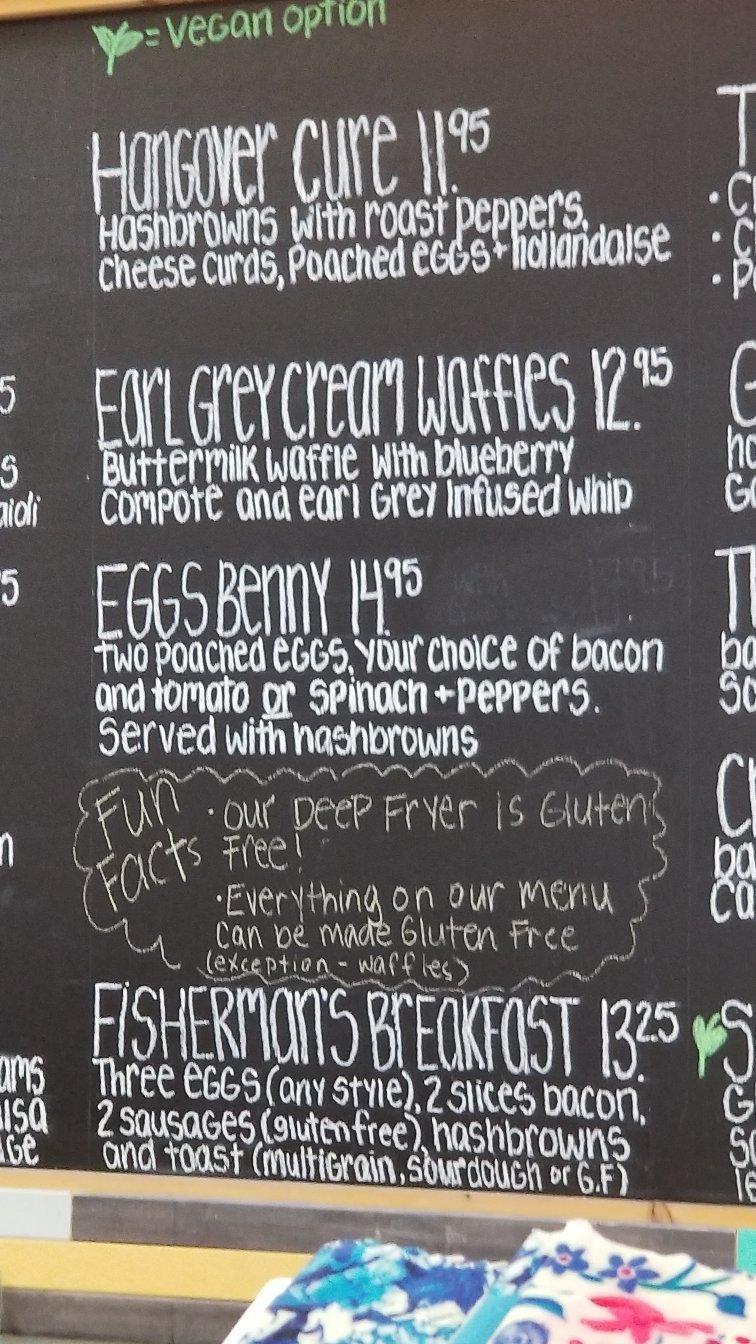 = Vegan option
Hangover Cure 11.95
Hashbrowns with roast peppers,
cheese curds, Poached eggs + hollandaise
Earl Grey Cream Waffles 12.95
Buttermilk Waffle with blueberry
compote and earl Grey Infused Whip
EGGS Benny 14.95
two poached eggs, your choice of bacon
and tomato or spinach + peppers.
Served with hashbrowns
Fun Facts
• Our Deep Fryer is Gluten
Free!
• Everything on our menu
can be made Gluten Free
(exception - waffles)
Fisherman's Breakfast 13.25
Three eggs (any style), 2 slices bacon,
2 sausages (gluten free), hashbrowns
and toast (multigrain, sourdough or G.F)